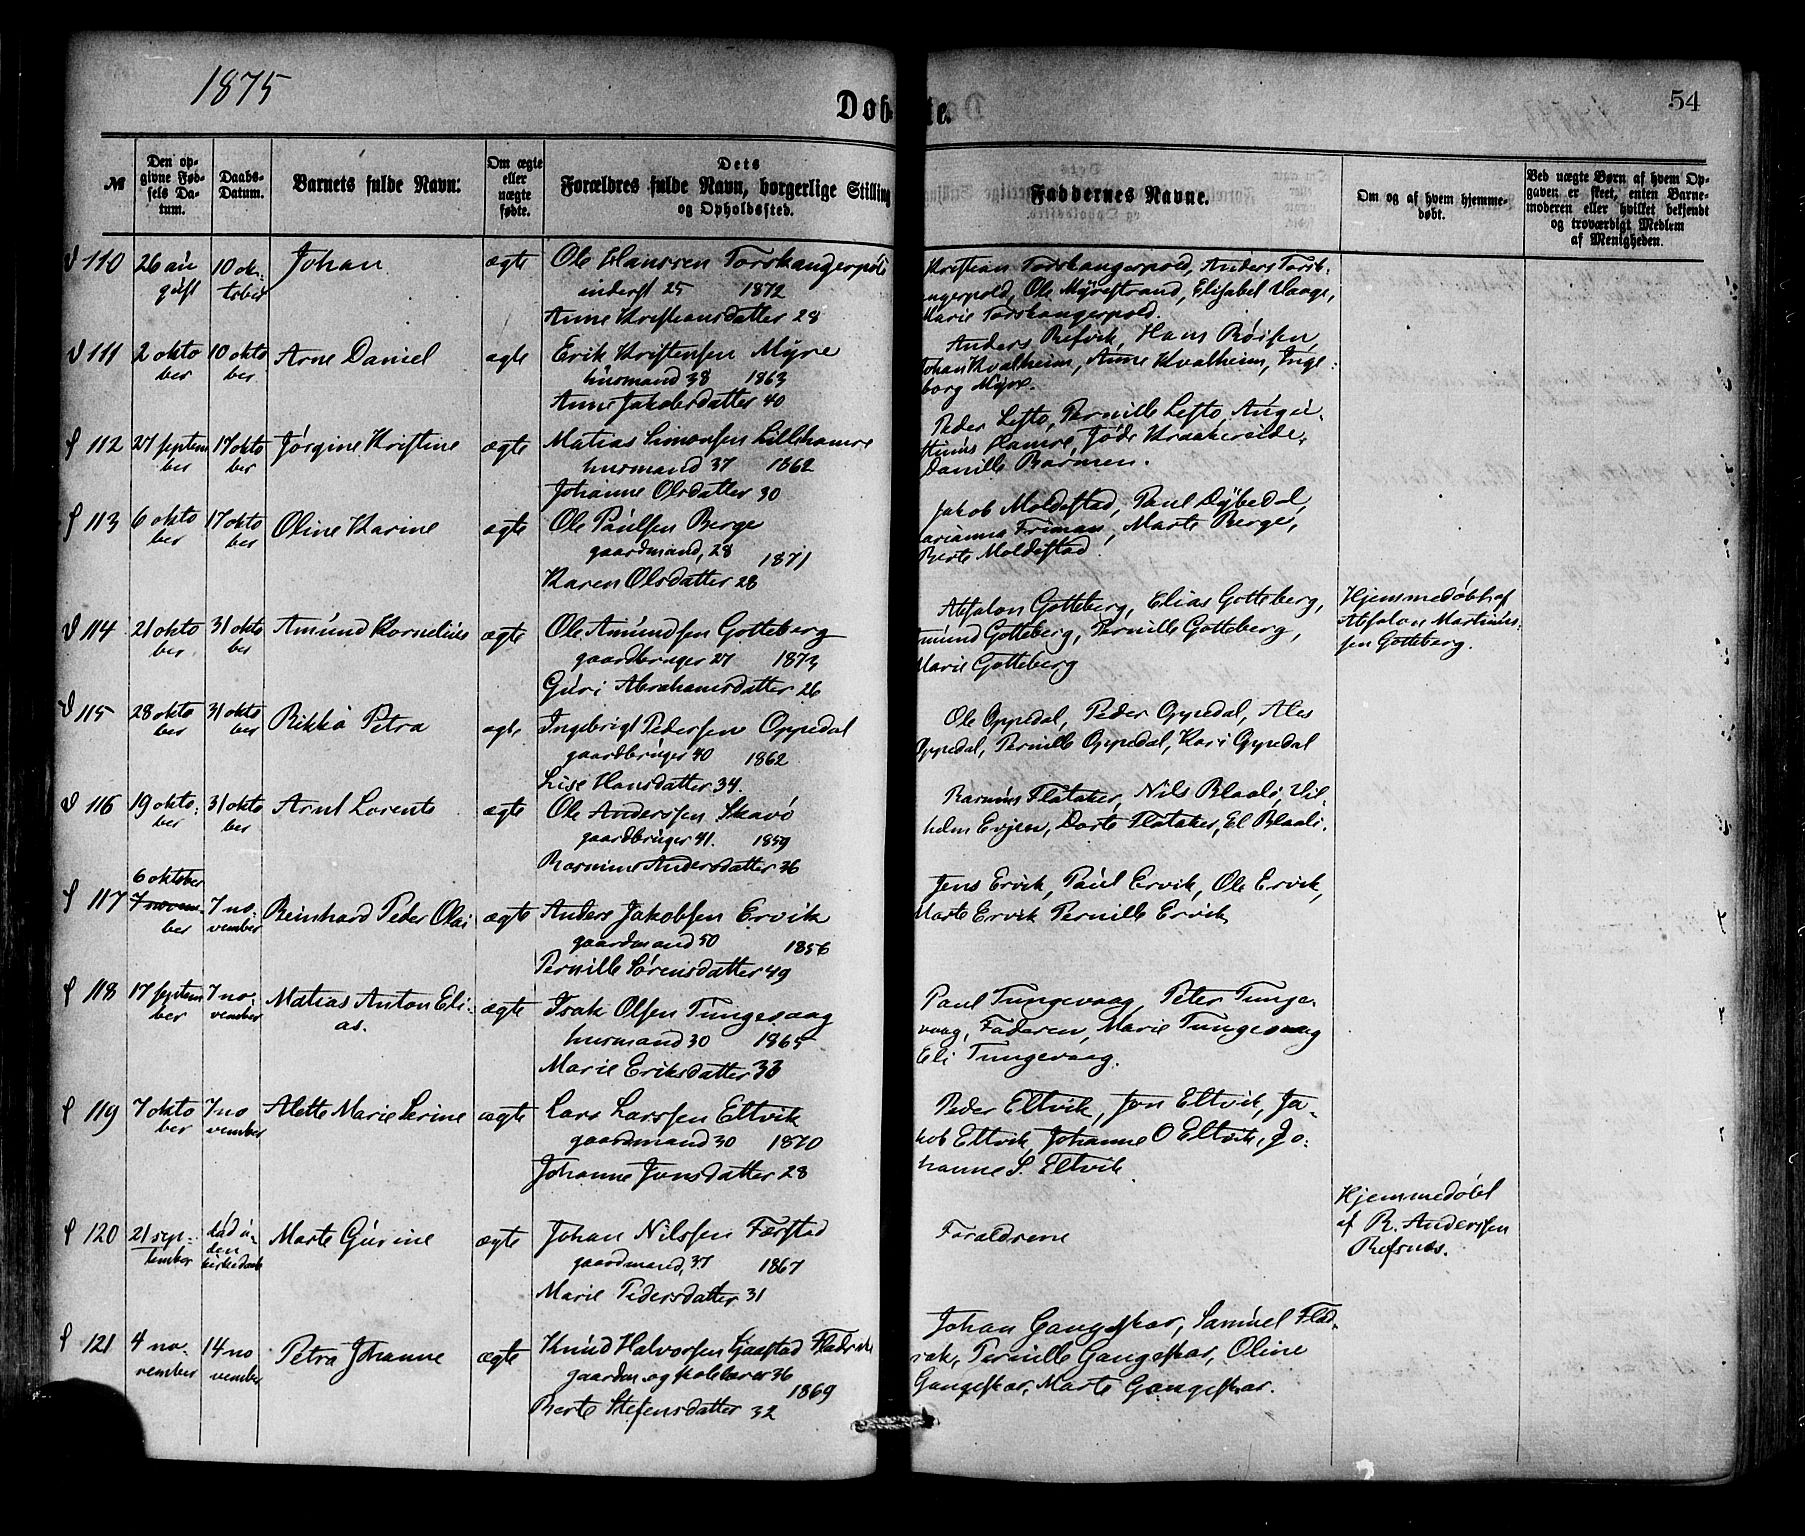 1875
Døbte.
54
№
Den opgivne Fødsels Datum.
Daabs-Datum.
Barnets fulde Navn:
Om ægte eller uægte fødte.
Dets Forældres fulde Navn, borgerlige Stilling og Opholdssted.
Faddernes Navne.
Om og af hvem hjemmedøbt.
Ved uægte Børn af hvem Opgaven er skeet, enten Barnemoderen eller hvilket bekjendt og troværdigt Medlem af Menigheden.
V 110 26 august 10 oktober Johan ægte Ole Hanssen Torskangerpold
inderst 25 1872
Anne Kristiansdatter 28
Kristian Torskangerpold, Anders Torsk-
angerpold, Ole Myrestrand, Elisabet Vaage,
Marie Torskangerpold.
V 111 2 oktober 10 oktober Arne Daniel ægte Erik Kristensen Myre
husmand 38 1863
Anne Jakobsdatter 40
Anders Refvik, Hans Røisen,
Johan Kvalheim, Anne Kvalheim, Inge-
borg Myre.
S 112 27 september 17 oktober Jørgine Kristine ægte Matias Simonsen Lillehamre
husmand 37 1862
Johanne Olsdatter 30
Peder Lefto, Pernille Lefto, Augu-
stinus Hamre, Jøde Kraakerside,
Danille Barmen.
S 113 6 oktober 17 oktober Oline Karine ægte Ole Paulsen Berge
gaardmand, 28 1871
Karen Olsdatter 28
Jakob Moldestad, Paul Dybedal,
Marianna Friman, Marte Berge,
Berte Moldestad.
V 114 21 oktober 31 oktober Amund Kornelius ægte Ole Amundsen Gotteberg
gaardbruger 27 1873
Guri Abrahamsdatter 26
Absalon Gotteberg, Elias Gotteberg,
Amund Gotteberg, Pernille Gotteberg,
Marie Gotteberg
Hjemmedøbt af
Absalon Martinus-
sen Gotteberg.
V 115 28 oktober 31 oktober Rikka Petra ægte Ingebrigt Pedersen Oppedal
gaardbruger 40 1862
Lise Hansdatter 34
Ole Oppedal, Peder Oppedal, Ales
Oppedal, Pernille Oppedal, Kari Oppedal
V 116 19 oktober 31 oktober Arnt Lorents ægte Ole Anderssen Skavø
gaardbruger 41. 1859
Rasmine Andersdatter 36
Rasmus Flataker, Nils Blaali, Vil-
helm Evjen, Dorte Flataker, El Blaali.
S 117 6 oktober 7 november 7 november Reinhard Peder Olai ægte Anders Jakobsen Ervik
gaardmand 50 1856
Pernille Sørensdatter 49
Jens Ervik, Paul Ervik, Ole Ervik,
Marte Ervik Pernille Ervik
S 118 17 september 7 november Matias Anton Elias. ægte Isak Olsen Tungevaag
husmand 30 1865
Marie Eriksdatter 33
Paul Tungevaag, Peter Tunge-
vaag, Faderen, Marie Tungevaag
Eli Tungevaag.
S 119 7 oktober 7 november Alette Marie Serine ægte Lars Larssen Eltvik
gaardmand 30 1870
Johanne Jonsdatter 28
Peder Eltvik, Jon Eltvik, Ja-
kob Eltvik, Johanne O Eltvik, Jo-
hanne S. Eltvik.
S 120 21 september død uden kirkedaab Marte Gurine ægte Johan Nilssen Færstad
gaardmand, 37 1867
Marie Pedersdatter 31
Forældrene
Hjemmedøbt
af R. Anderssen
Refsnæs.
S 121 4 november 14 november Petra Johanne ægte Knud Halvorsen Gaastad Fladrak
gaardm. og skolelærer 36 1869
Berte Stefensdatter 32
Johan Gangeskar, Samuel Flad-
rak, Pernille Gangeskar, Oline
Gangeskar, Marte Gangeskar.